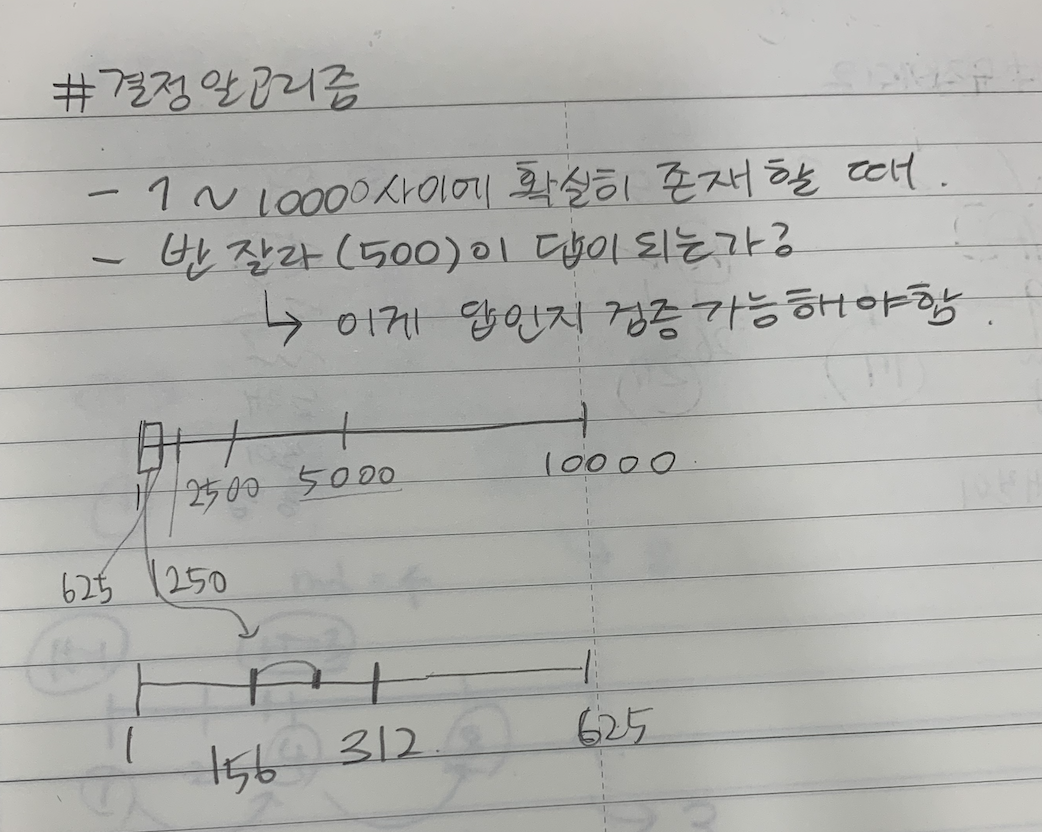 #결정알고리즘
- 1 ~ 10000사이에 확실히 존재할 때.
- 반 잘라 (500)이 답이 되는가?
↳ 이게 답인지 검증가능해야함.
1 2500 5000 10000
625 1250
1 156 312. 625